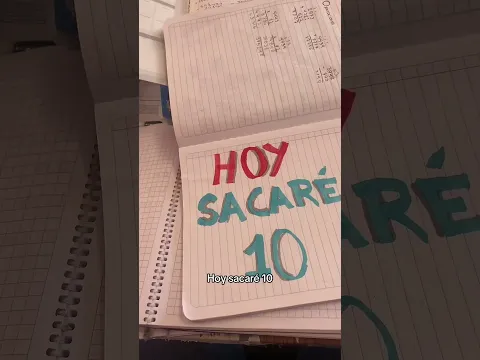 HOY
SACARÉ
10
Hoy sacaré 10